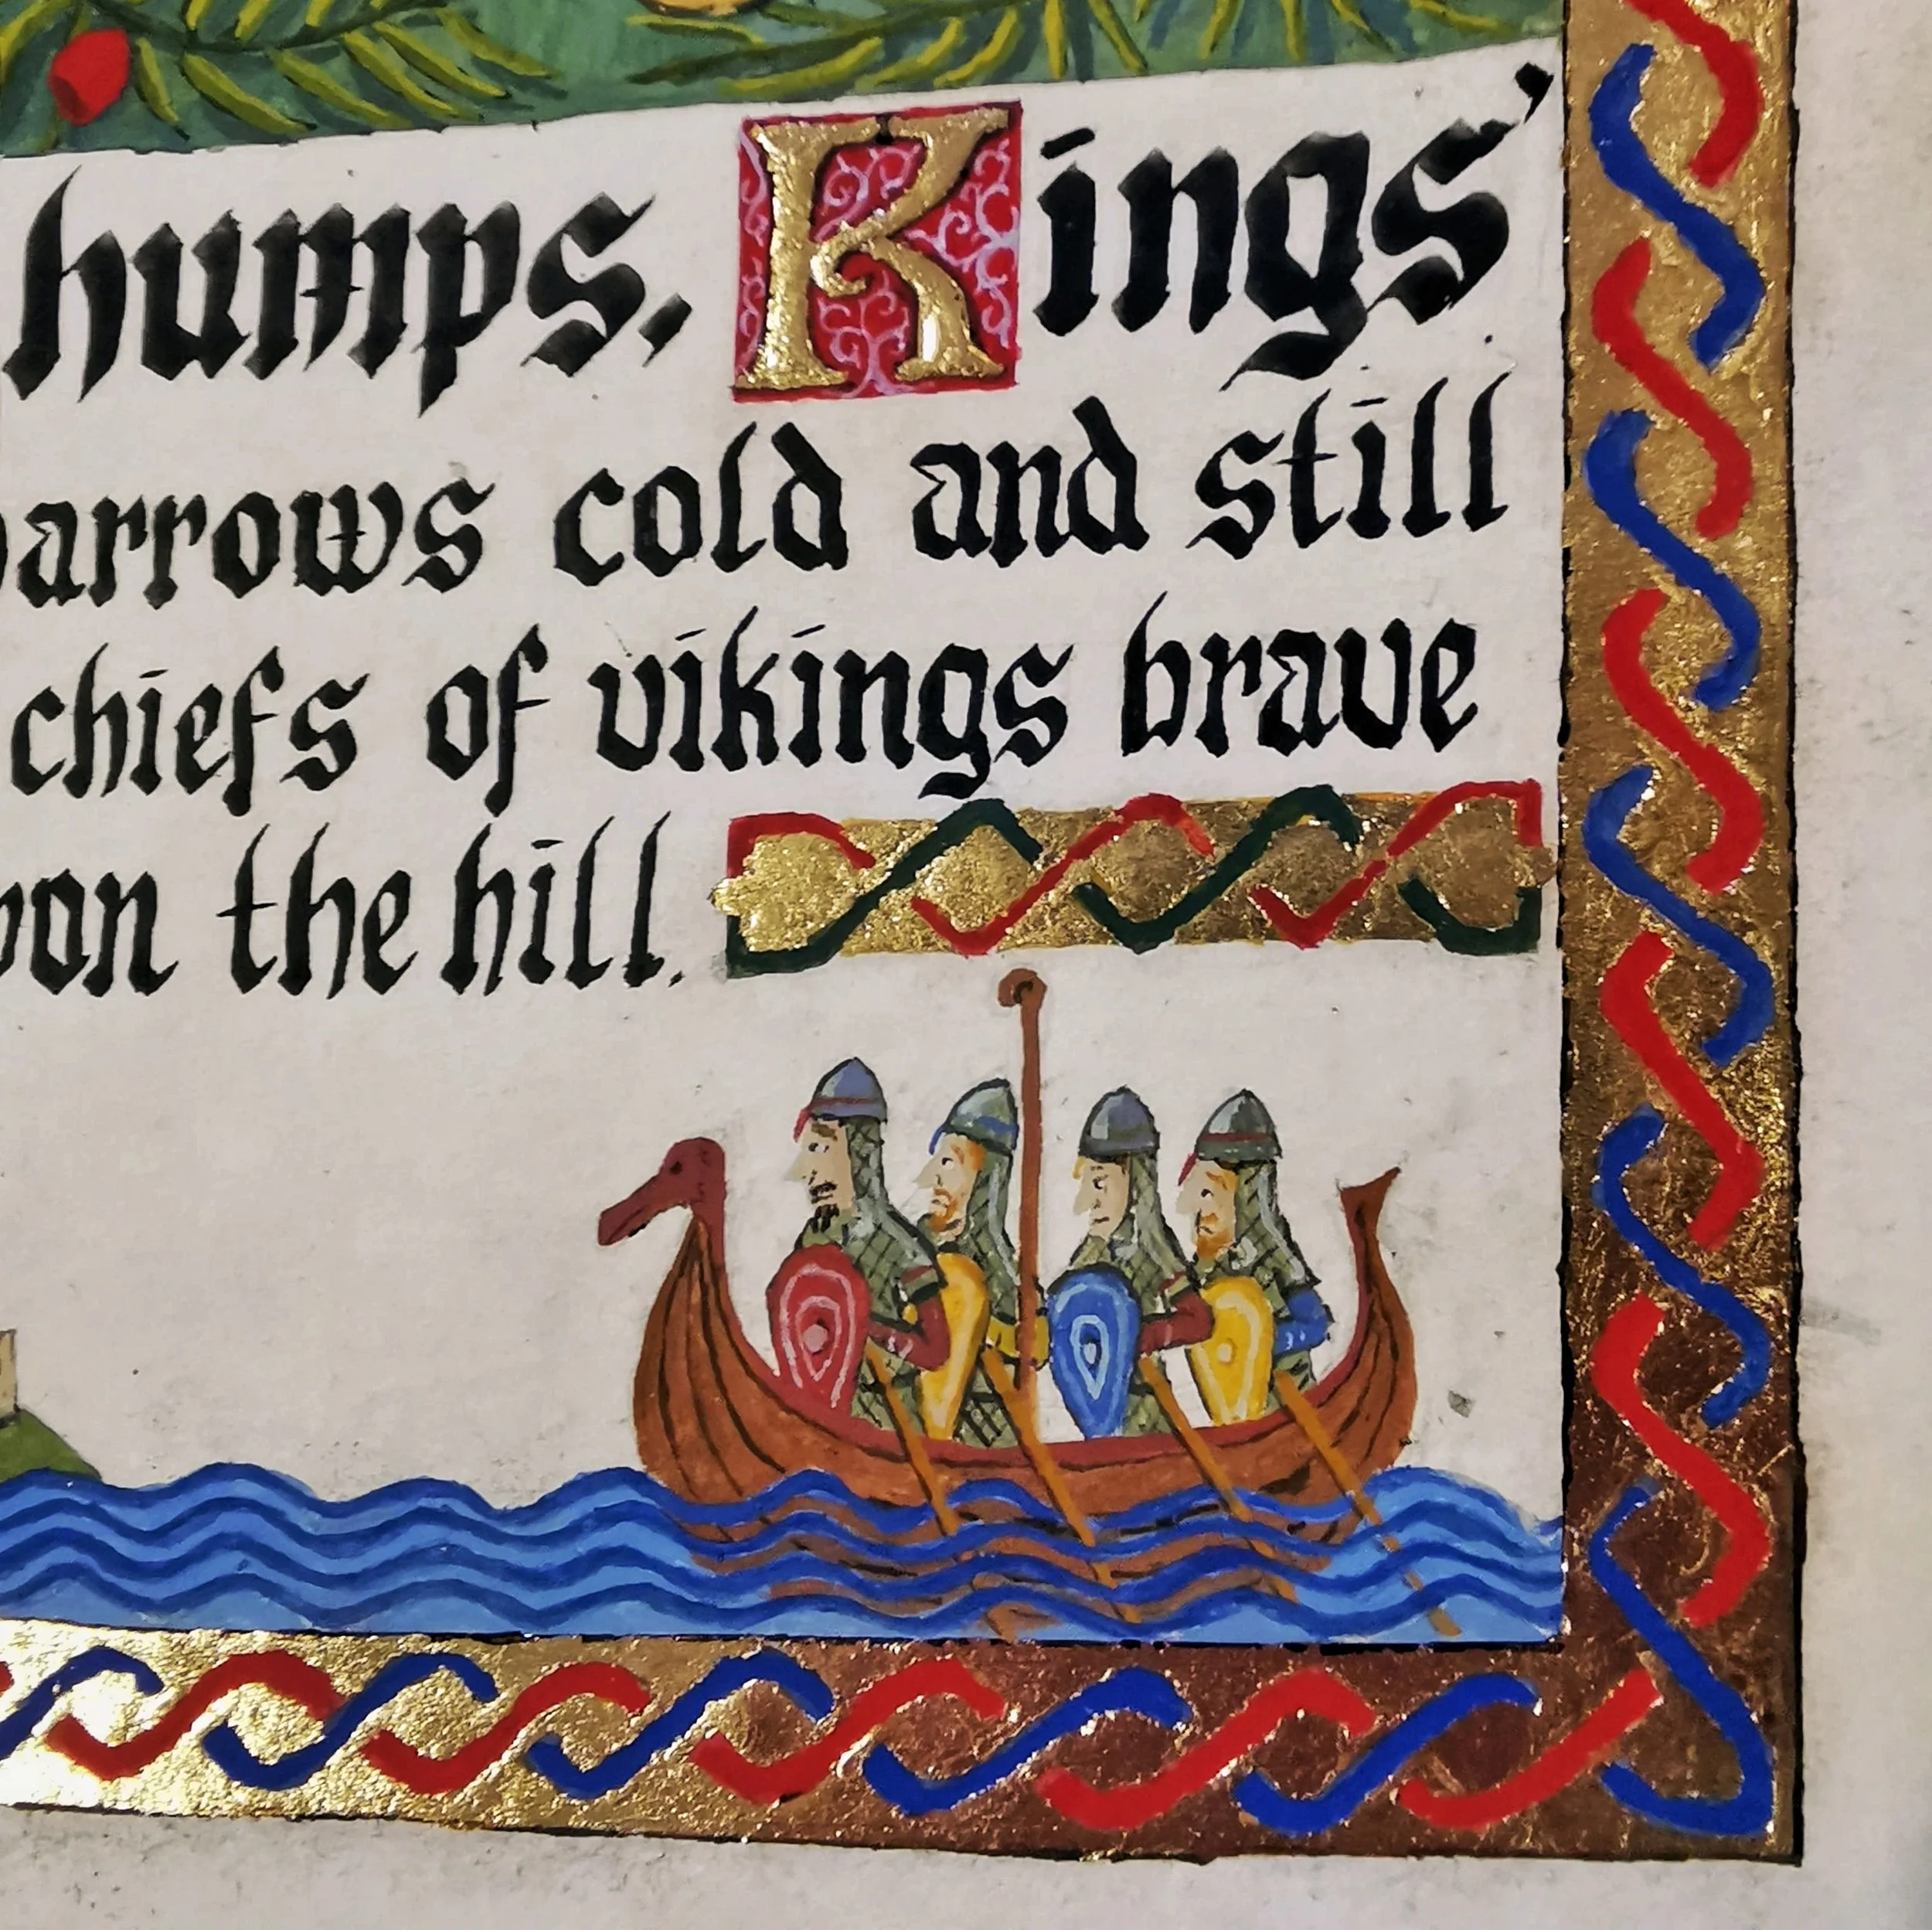 humps. Kings'
barrows cold and still
chiefs of vikings brave
upon the hill.